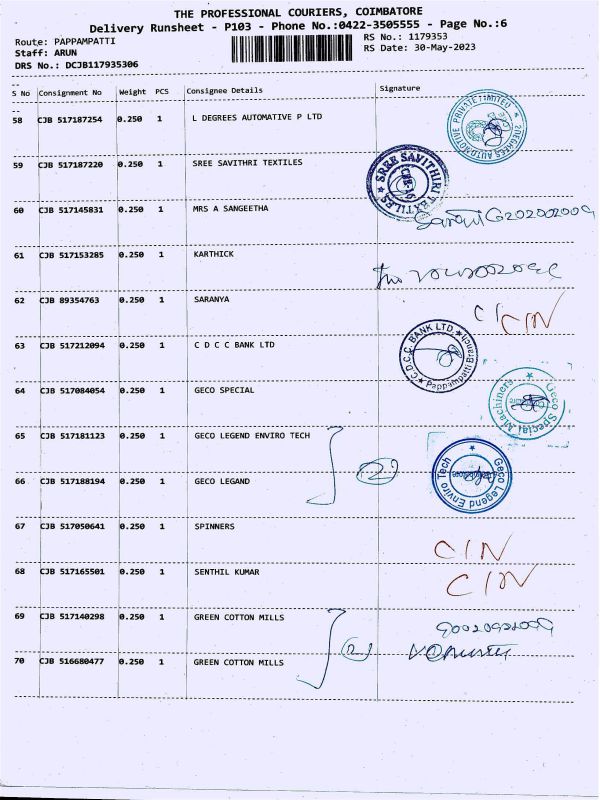 THE PROFESSIONAL COURIERS, COIMBATORE
Delivery Runsheet - P103 - Phone No.:0422-3505555 - Page No.:6
Route: PAPPAMPATTI
RS No.: 1179353
Staff: ARUN
RS Date: 30-May-2023
DRS No.: DCJB117935306
S No Consignment No Weight PCS Consignee Details Signature
58 CJB 517187254 0.250 1 L DEGREES AUTOMATIVE P LTD
59 CJB 517187220 0.250 1 SREE SAVITHRI TEXTILES
SREE SAVITHIRI TEXTILES
60 CJB 517145831 0.250 1 MRS A SANGEETHA
61 CJB 517153285 0.250 1 KARTHICK
62 CJB 89354763 0.250 1 SARANYA
C/N
63 CJB 517212094 0.250 1 C D C C BANK LTD
C.D.C.C. BANK LTD.
64 CJB 517084054 0.250 1 GECO SPECIAL
Geco Special Machines
65 CJB 517181123 0.250 1 GECO LEGEND ENVIRO TECH
2
Geco Legend Enviro Tech
66 CJB 517188194 0.250 1 GECO LEGAND
67 CJB 517050641 0.250 1 SPINNERS
C/N
68 CJB 517165501 0.250 1 SENTHIL KUMAR
C/N
69 CJB 517140298 0.250 1 GREEN COTTON MILLS
2
70 CJB 516680477 0.250 1 GREEN COTTON MILLS